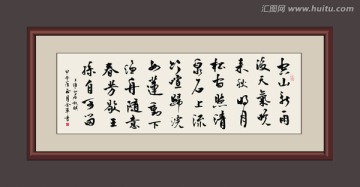 汇图网 www.huitu.com
空山新雨
後天氣晚
来秋明月
松間照清
泉石上流
竹喧歸浣
女蓮動下
漁舟隨意
春芳歇王
孫自可留